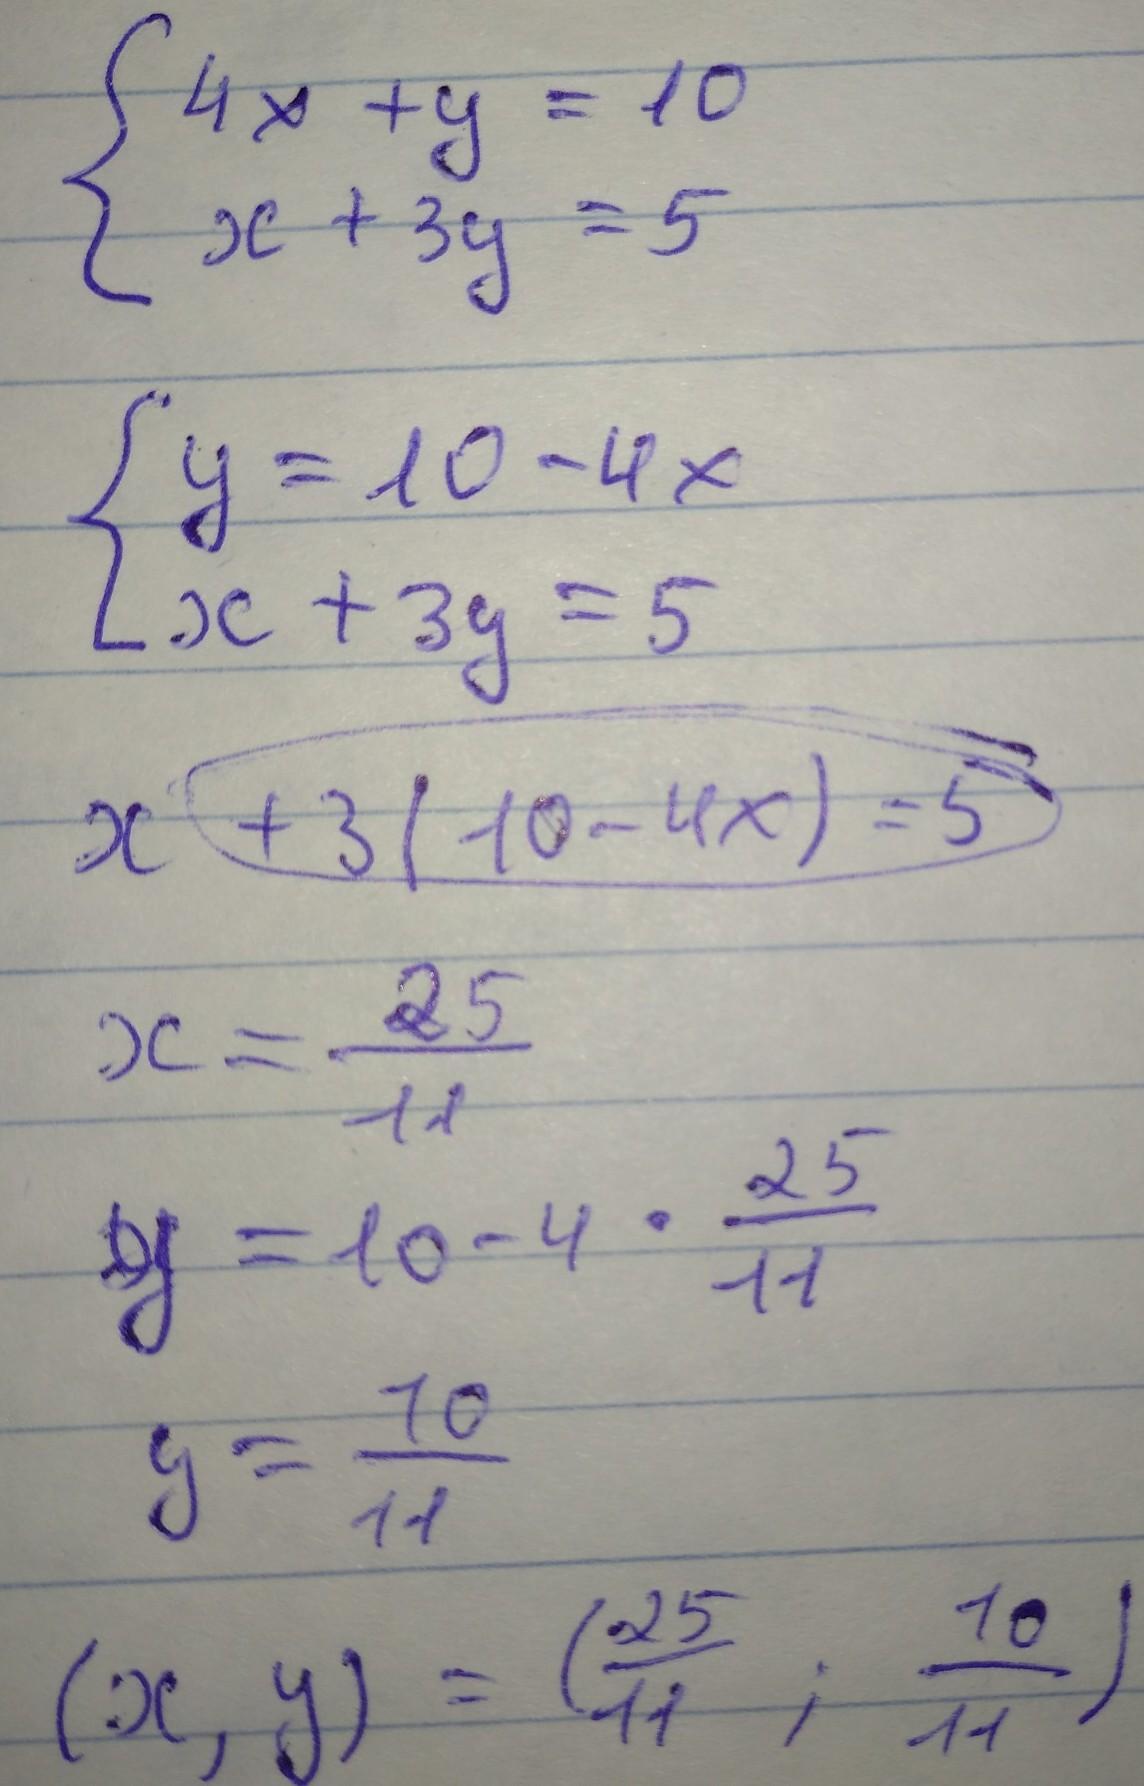 4x + y = 10
x + 3y = 5
y = 10 - 4x
x + 3y = 5
x + 3(10 - 4x) = 5
x = 25/11
y = 10 - 4 · 25/11
y = 10/11
(x, y) = (25/11 ; 10/11)